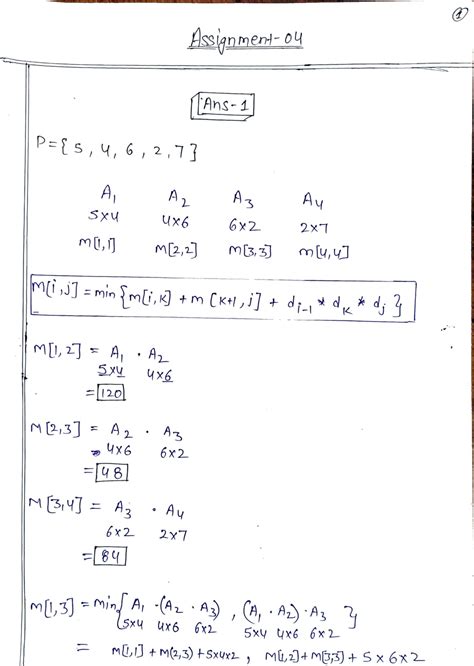 1
Assignment-04
Ans-1
P={ 5, 4, 6, 2, 7 }
A1 A2 A3 A4
5x4 4x6 6x2 2x7
M[1,1] M[2,2] M[3,3] M[4,4]
M[i,j] = min { m[i,k] + m[k+1,j] + di-1 * dk * dj }
M[1,2] = A1 . A2
5x4 4x6
= 120
M[2,3] = A2 . A3
4x6 6x2
= 48
M[3,4] = A3 . A4
6x2 2x7
= 84
M[1,3] = min{ A1 .(A2 . A3) , (A1 . A2) . A3 }
5x4 4x6 6x2 5x4 4x6 6x2
= M[1,1] + M(2,3) + 5x4x2 , M[1,2] + M[3,3] + 5x6x2